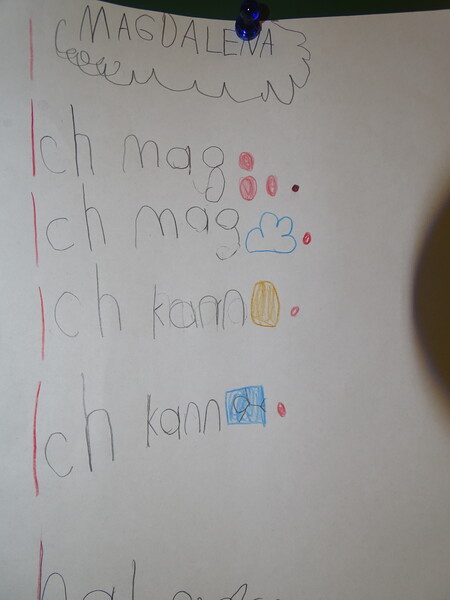 MAGDALENA
Ich mag
Ich mag
Ich kann
Ich kann